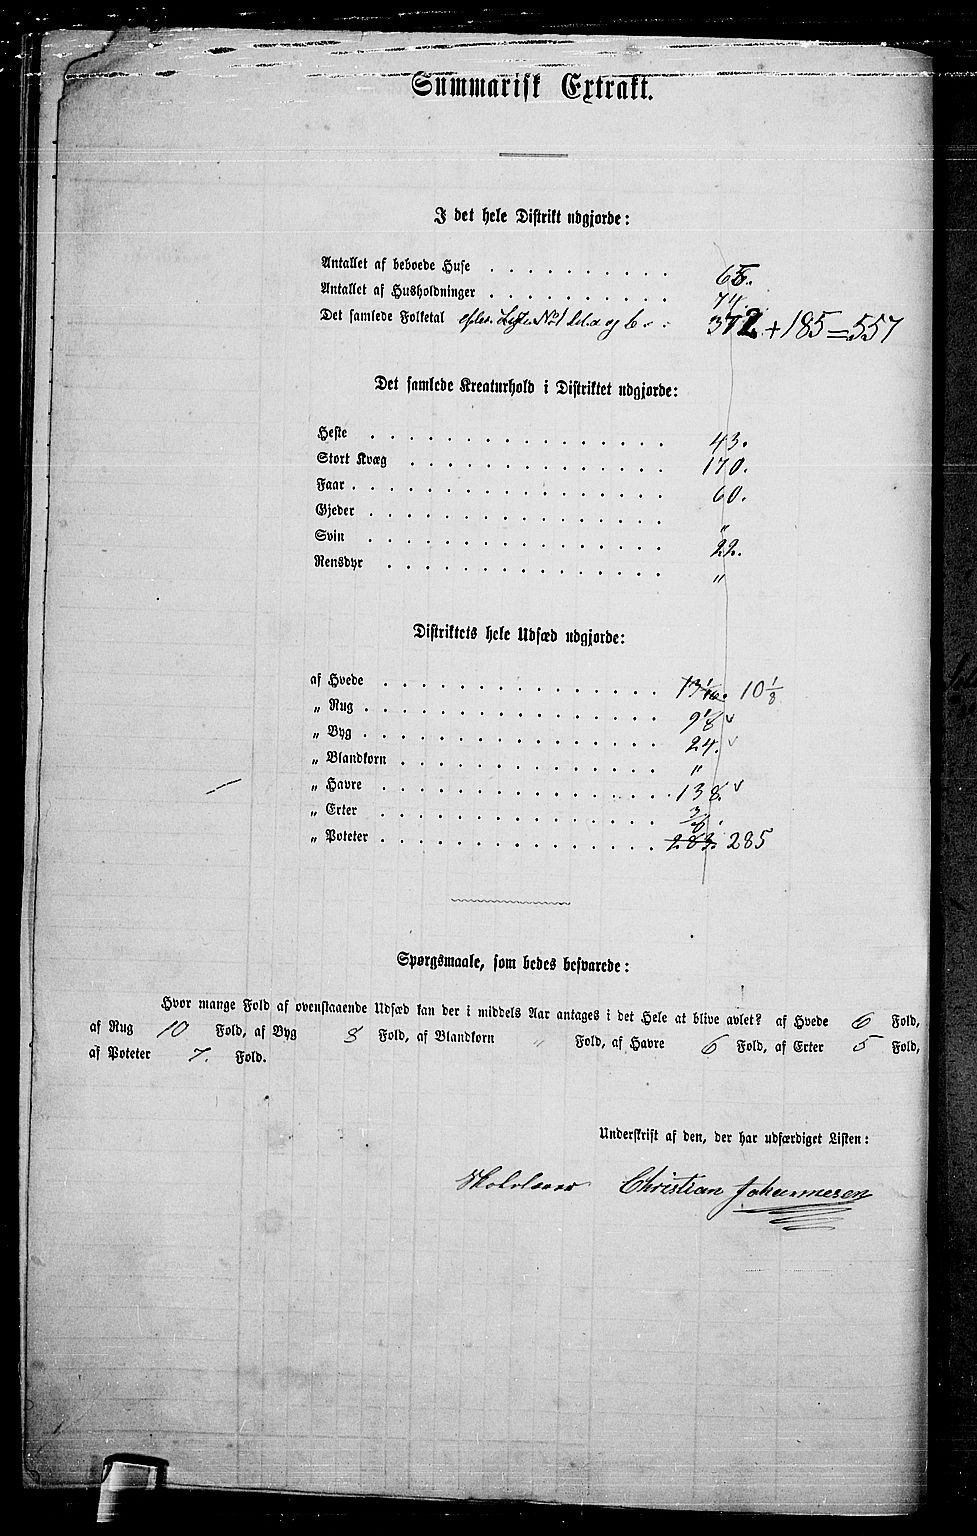 Summarisk Extrakt.
I det hele Distrikt udgjorde:
Antallet af beboede Huse . . . . . . . . . . 65.
Antallet af Husholdninger . . . . . . . . . . 74.
Det samlede Folketal efter Liste No 1 Litr. a og b. 372 + 185 = 557
Det samlede Kreaturhold i Distriktet udgjorde:
Heste . . . . . . . . . . . . . . . . 43.
Stort Kvæg . . . . . . . . . . . . . . 170.
Faar . . . . . . . . . . . . . . . . . 60.
Gjeder . . . . . . . . . . . . . . . . "
Svin . . . . . . . . . . . . . . . . 22.
Rensdyr . . . . . . . . . . . . . . . "
Distriktets hele Udsæd udgjorde:
af Hvede . . . . . . . . . . . . . . . 13 1/16. 10 1/8
„ Rug . . . . . . . . . . . . . . . . 9 1/8 v
„ Byg . . . . . . . . . . . . . . . . 24. v
„ Blandkorn . . . . . . . . . . . . . "
„ Havre . . . . . . . . . . . . . . . 138. v
„ Erter . . . . . . . . . . . . . . . 3/8.
„ Poteter . . . . . . . . . . . . . . 283. 285
Spørgsmaale, som bedes besvarede:
Hvor mange Fold af ovenstaaende Udsæd kan der i middels Aar antages i det Hele at blive avlet? af Hvede 6 Fold,
af Rug 10 Fold, af Byg 8 Fold, af Blandkorn " Fold, af Havre 6 Fold, af Erter 5 Fold,
af Poteter 7. Fold.
Underskrift af den, der har udfærdiget Listen:
Skolelærer Christian Johannesen